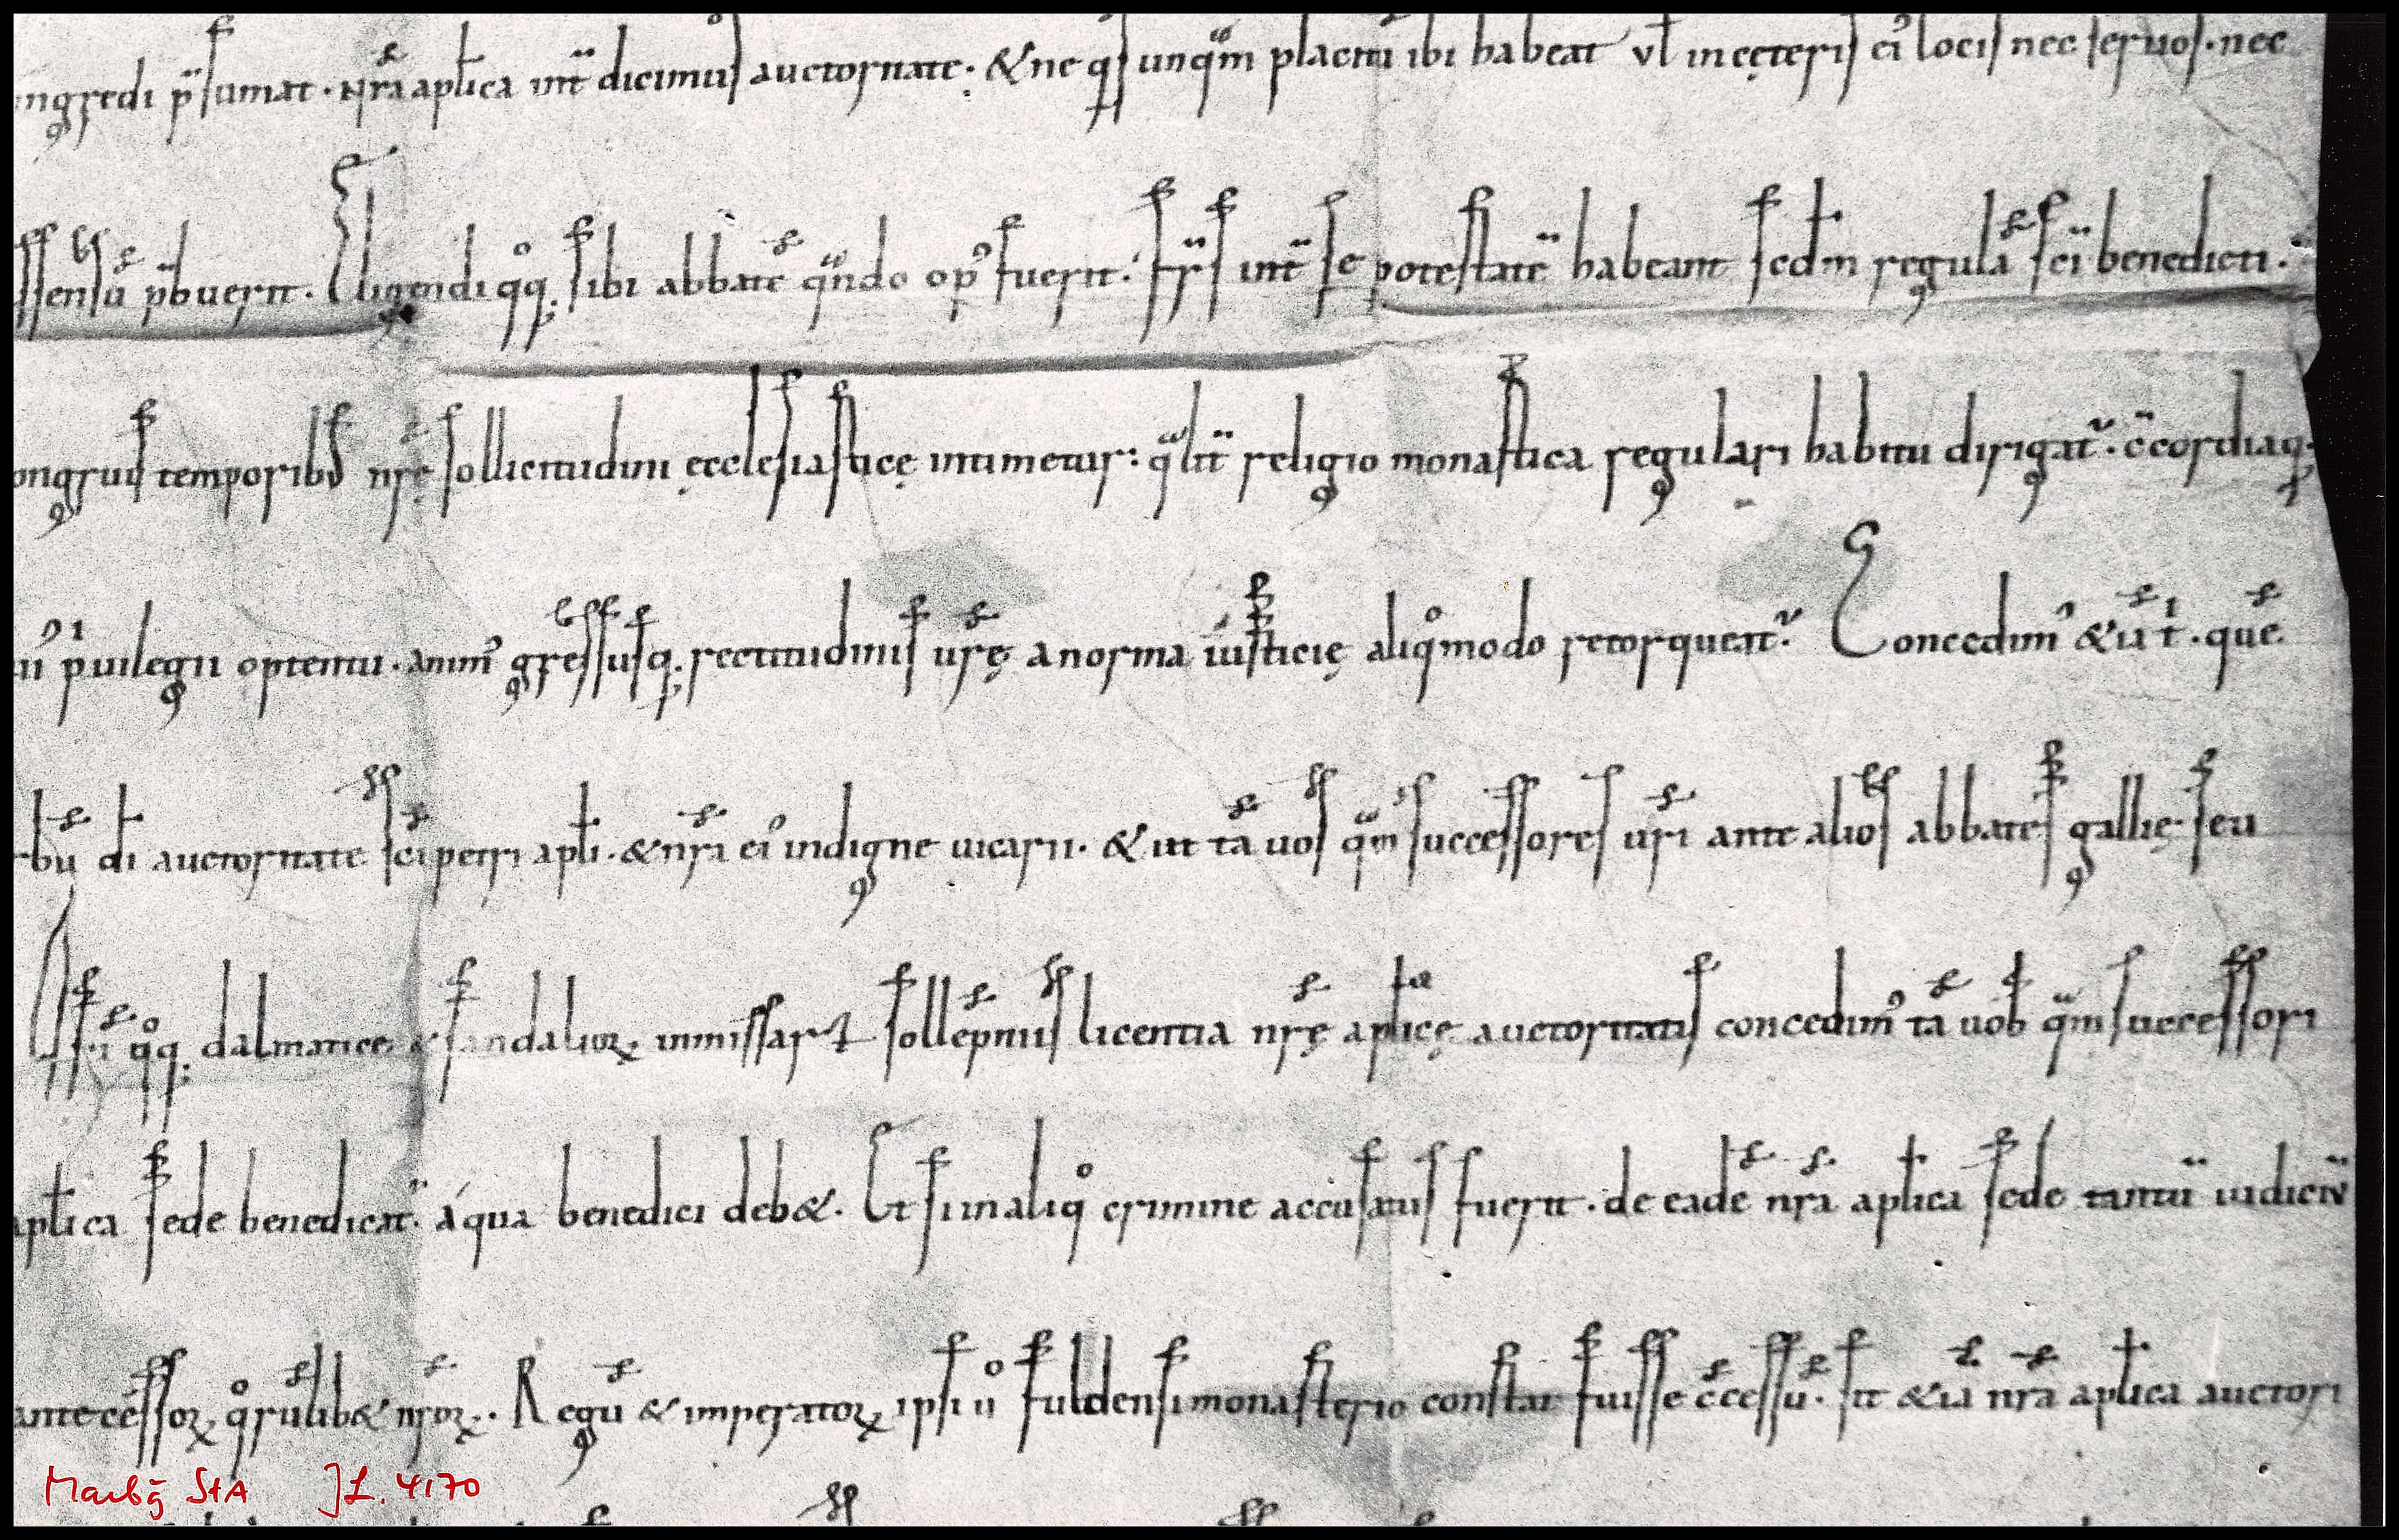 ngredi p̄sumat. nr̄a apl̄ica int̄ dicimus auctoritate. & ne q̄s unq̄m placitū ibi habeat vl̄ in cęteris ei᾽ locis nec seruos. nec
ssensū p̄buerit. Eligendi q̊q; sibi abbatē qn̄do op᾽ fuerit. fr̄s int̄ se potestatē habeant scd̄m regulā sc̄i benedicti.
ongruis temporib; nr̄ę sollicitudini ęcclesiasticę intimetur: q̄lit̄ religio monastica regulari habitu dirigat᾽. c̄cordiaq;
ii p̄uilegii optentu. anim᾽ gressusq; rectitudinis ur̄ę a norma iusticię aliq̊modo retorqueat᾽. Concedim᾽ & ū t̄. quē
bū dī auctoritate sc̄i petri apl̄i. & nr̄a ei᾽ indigne uicarii. & ut tā uos q̄m successores ur̄i ante alios abbates gallię seu
q̊q; dalmatice & sandalioꝝ in missarꝝ sollēpniis licentia nr̄ę apl̄icę auctoritatis concedim᾽ tā uob̄ q̄m successori
apl̄ica sede benedicat᾽ a qua benedici deb&. Et si in aliq̊ crimine accusatus fuerit. de eadē nr̄a apl̄ica sede tantū iudiciū
antecessoꝝ q̊rūlib& nr̄oꝝ. Regū & imperatoꝝ ipsi ů fuldensi monasterio constat fuisse c̄cessū. sit &iā nr̄a apl̄ica auctori
Marbg StA JL. 4170